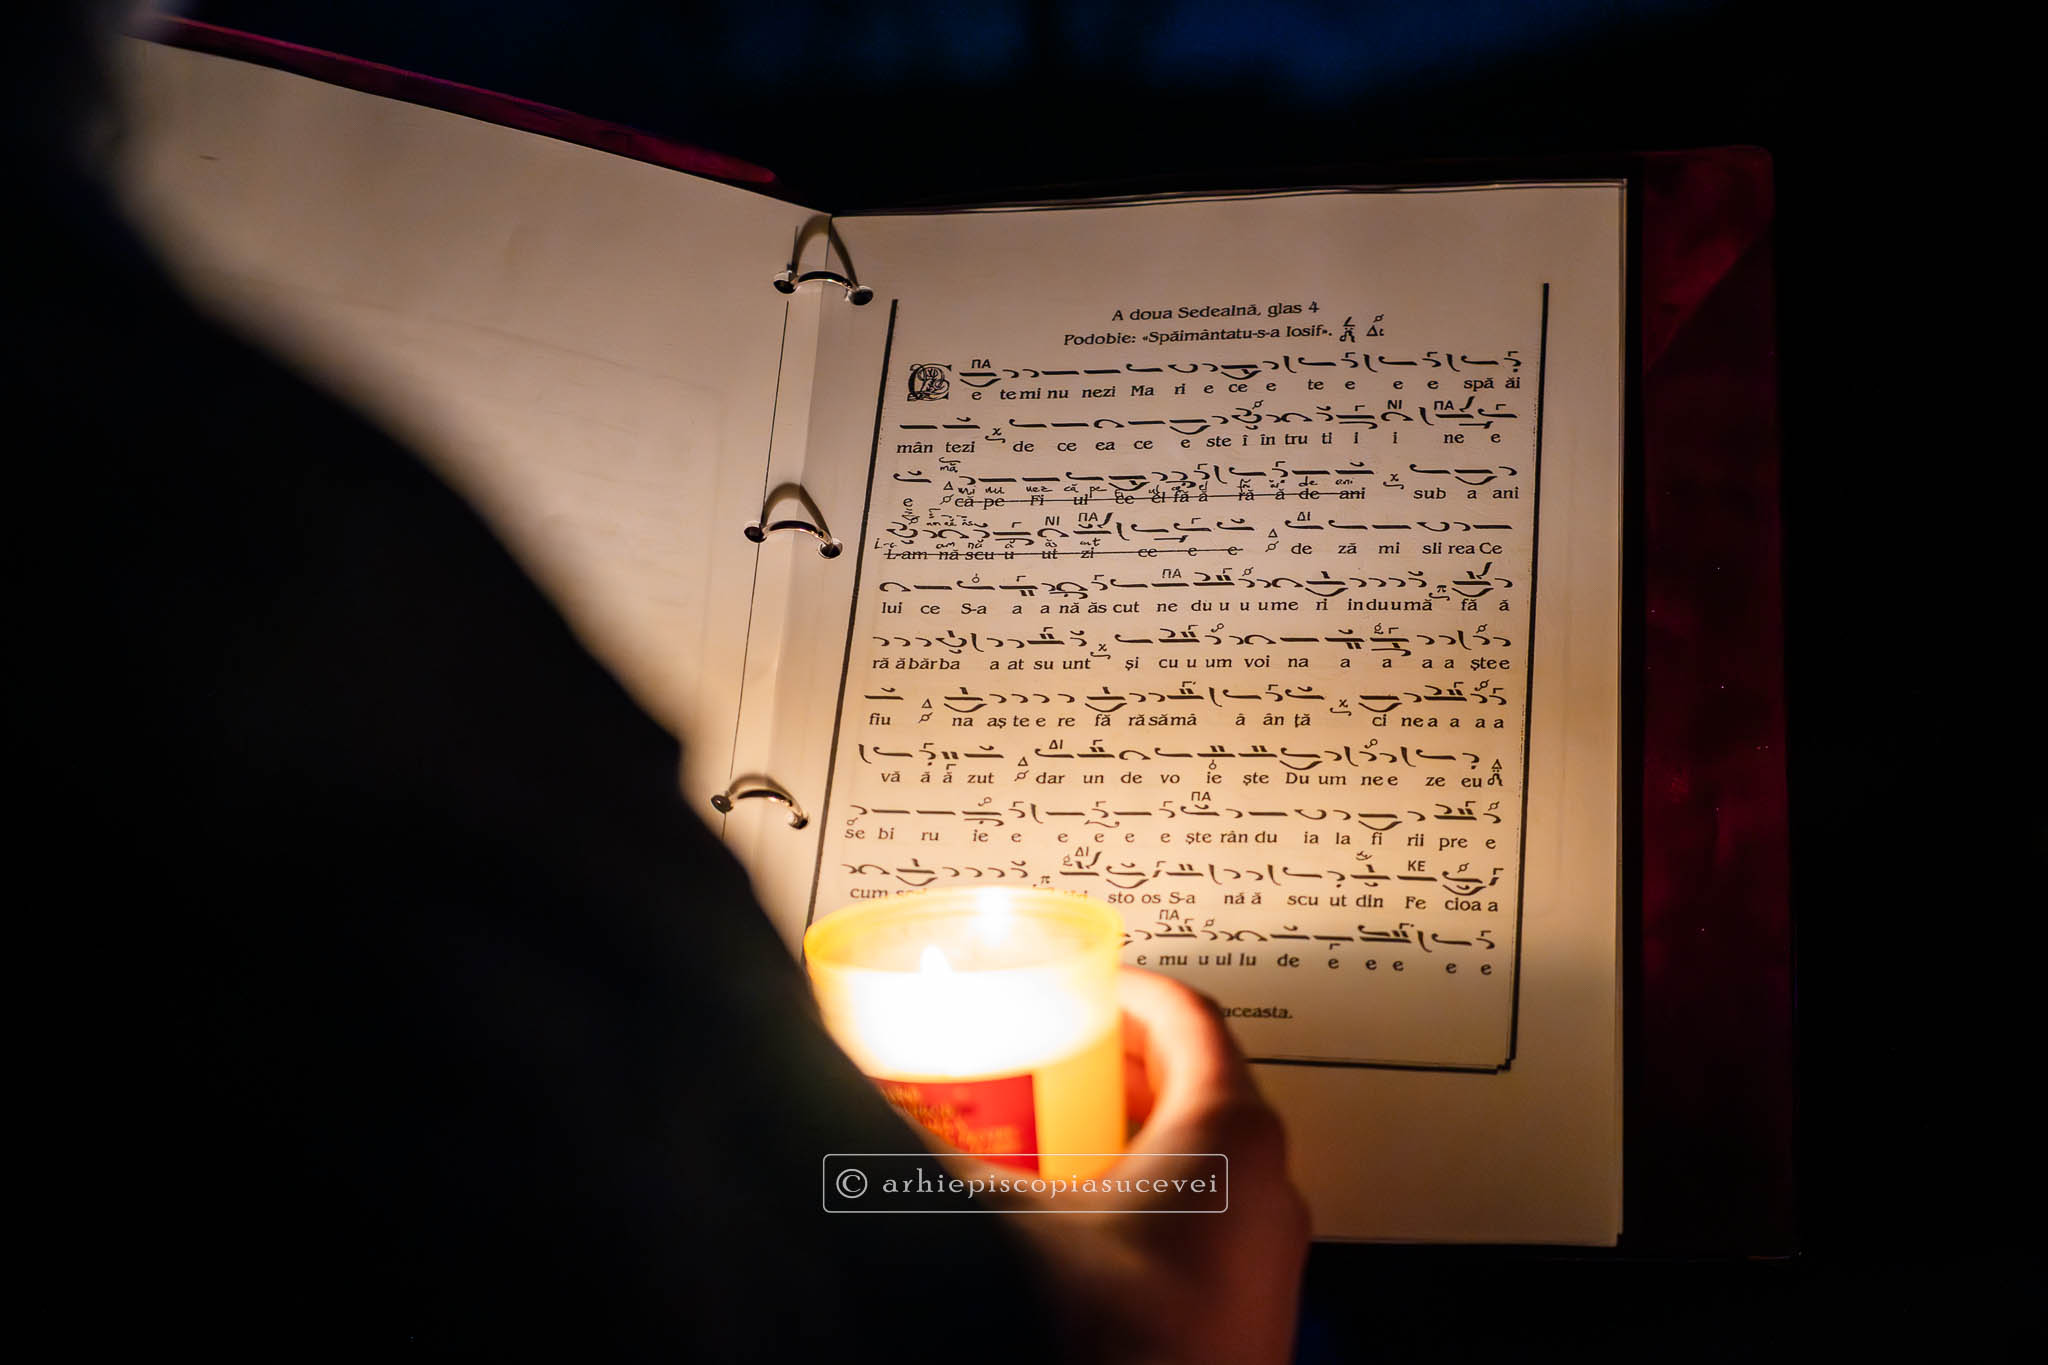 A doua Sedealnă, glas 4
Podobie: «Spăimântatu-s-a Iosif».
ΠΑ
C e te mi nu nezi Ma ri e ce e te e e e spă ăi
ΝΙ ΠΑ
mân tezi de ce ea ce e ste î în tru ti i i ne e
mă
mi nu nez că pe
e că pe Fi ul ce el fă ă ră ă de ani sub a ani
ΝΙ ΠΑ ΔΙ
L-am nă scu u ut zi ce e e de ză mi sli rea Ce
ΠΑ
lui ce S-a a a nă ăs cut ne du u u ume ri in du umă fă ă
ră ă băr ba a at su unt și cu u um voi na a a a a ște e
fiu na aș te e re fă ră sămâ â ân ță ci ne a a a a
ΔΙ
vă ă ă zut dar un de vo ie ște Du um ne e ze eu
ΠΑ
se bi ru ie e e e e e ște rân du ia la fi rii pre e
ΔΙ ΚΕ
cum sto os S-a nă ă scu ut din Fe cioa a
ΠΑ
e mu u ul lu de e e e e e
aceasta.
© arhiepiscopiasucevei